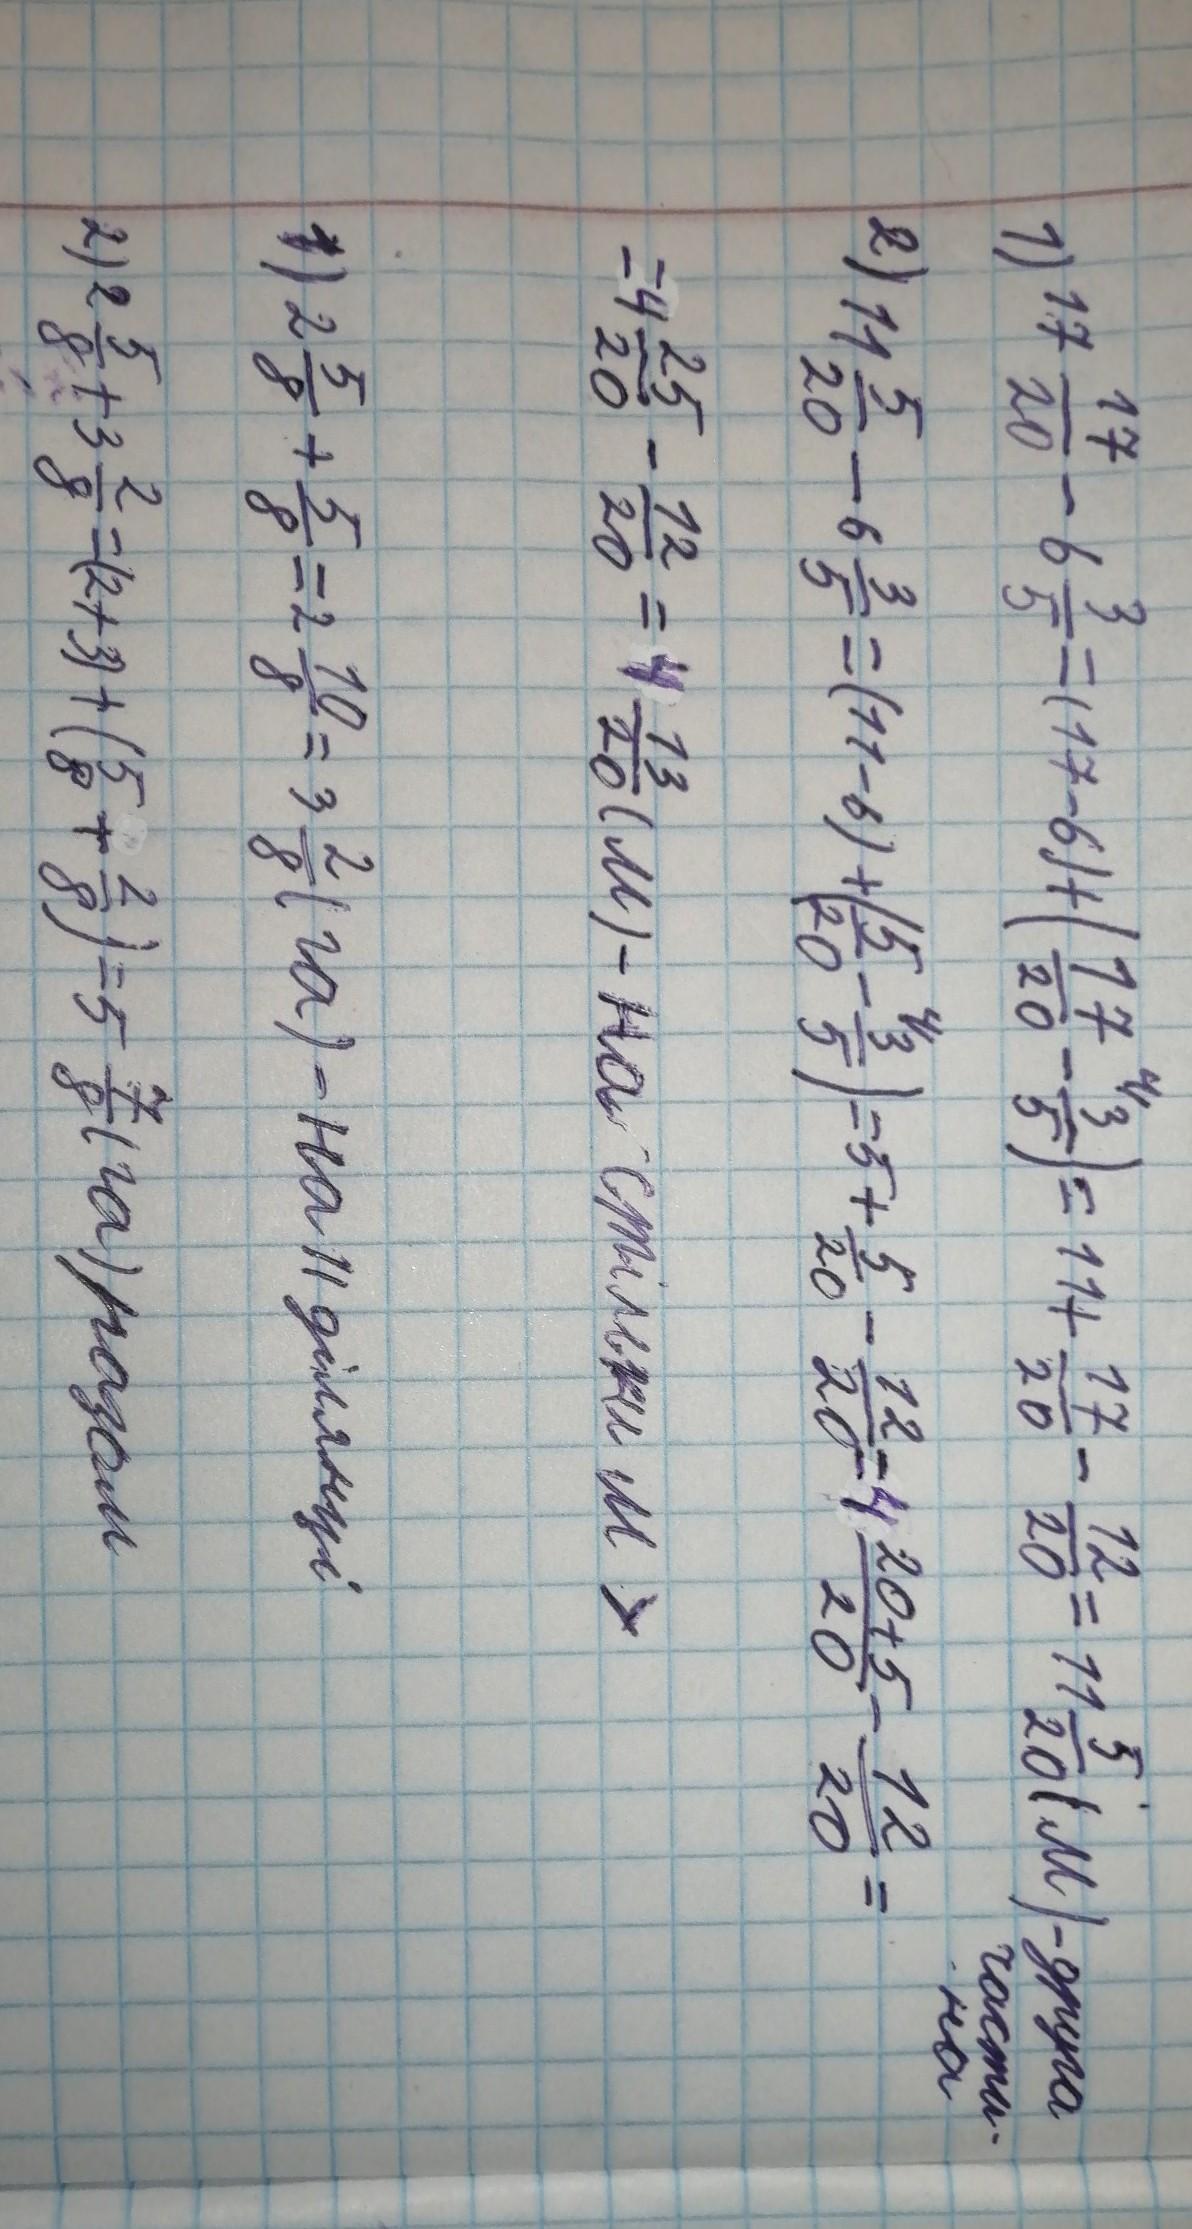 1) 17 17/20 - 6 3/5 = (17-6) + (17/20 - 3/5 ⁴) = 11 + 17/20 - 12/20 = 11 5/20 (м) - друга
части-
на
2) 11 5/20 - 6 3/5 = (11-6) + (5/20 - 3/5 ⁴) = 5 + 5/20 - 12/20 = 4 20+5/20 - 12/20 =
= 4 25/20 - 12/20 = 4 13/20 (м) - На стільки м >
1) 2 5/8 + 5/8 = 2 10/8 = 3 2/8 (га) - На II ділянці
2) 2 5/8 + 3 2/8 = (2+3) + (5/8 + 2/8) = 5 7/8 (га) разом